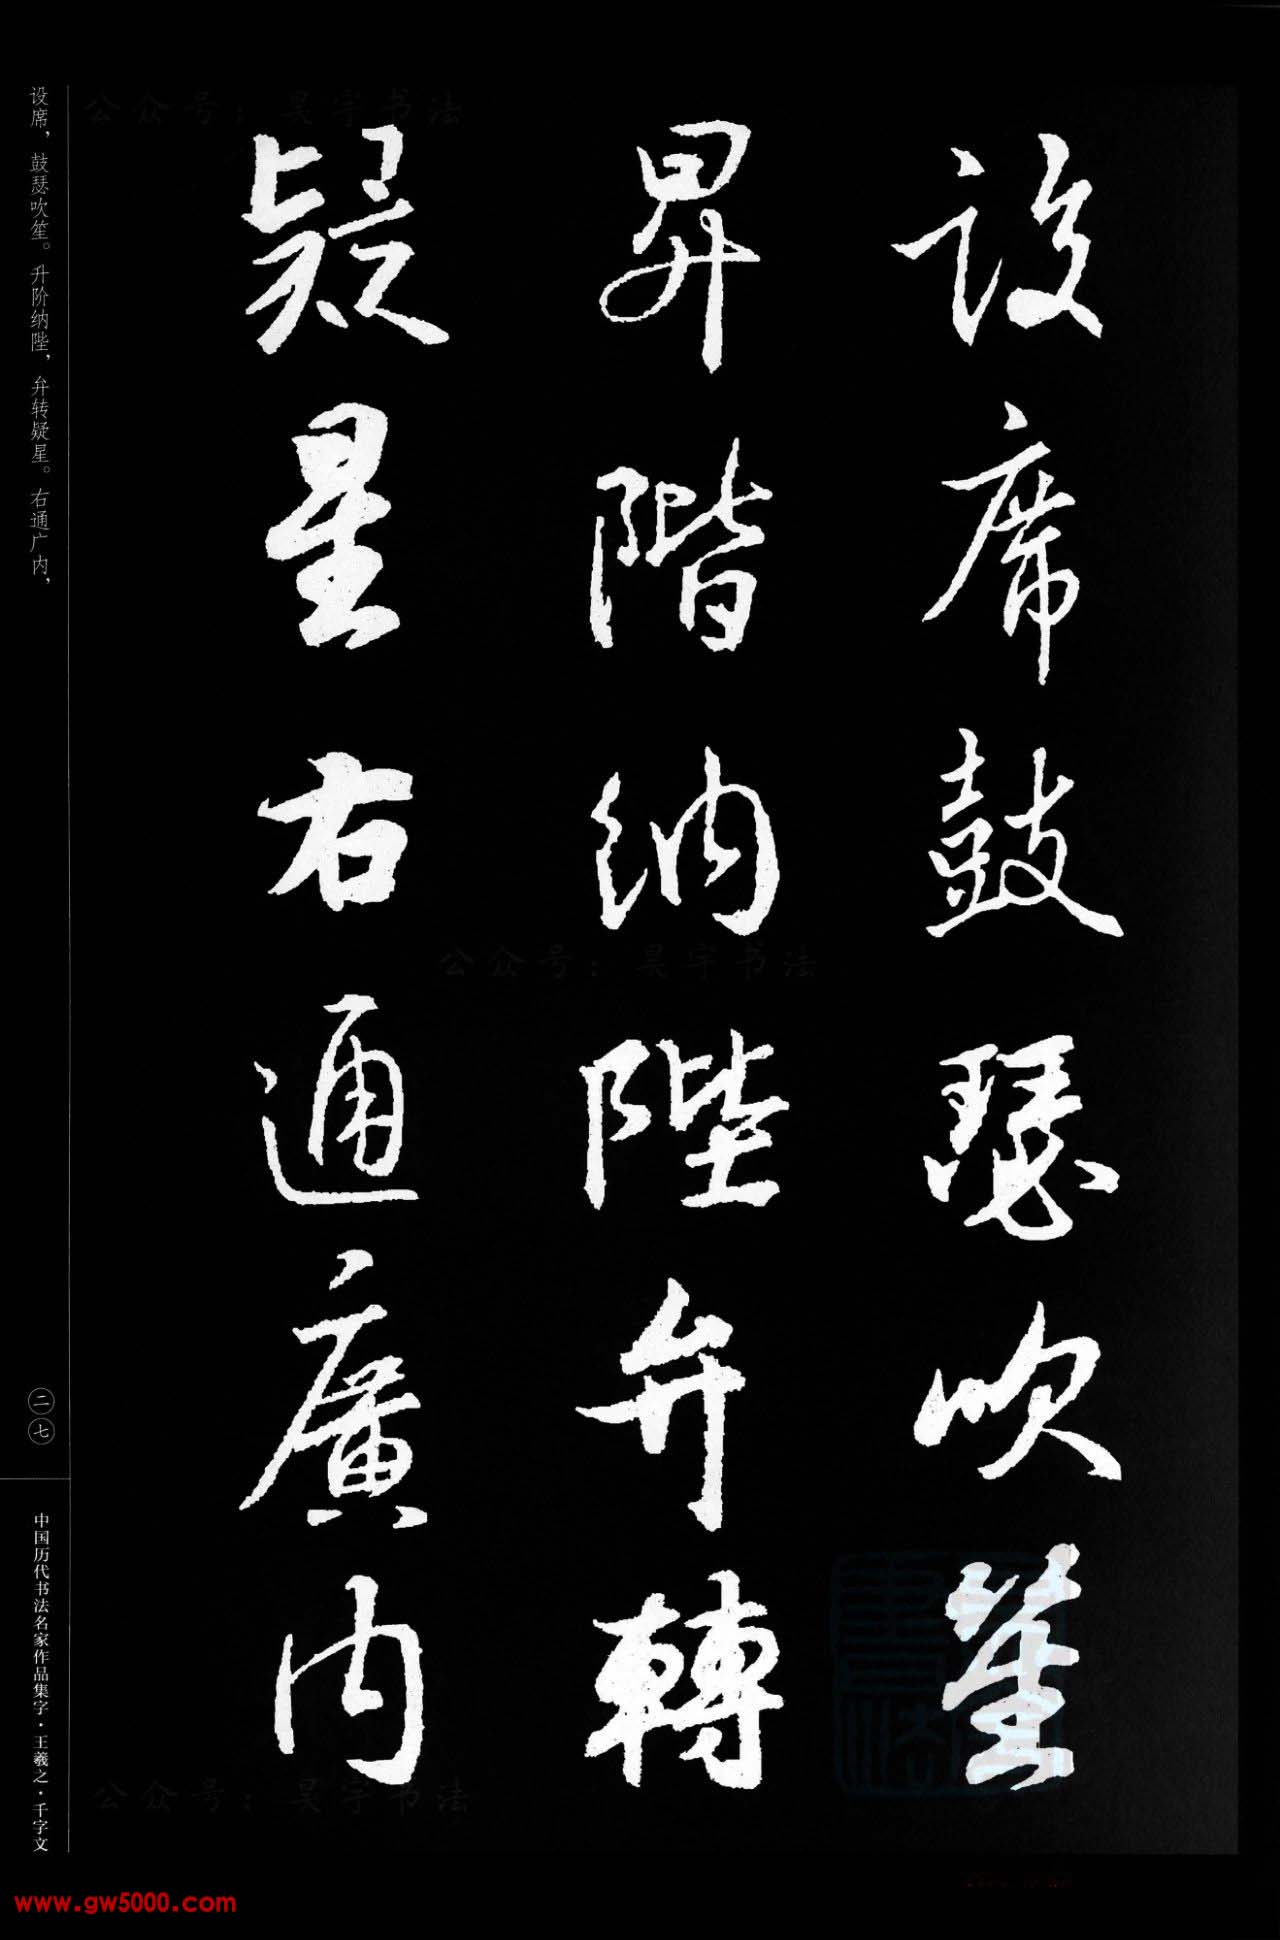 设席鼓瑟吹笙
昇階納陛弁轉
疑星右通廣内
设席，鼓瑟吹笙。升阶纳陛，弁转疑星。右通广内，
二七
中国历代书法名家作品集字·王羲之·千字文
公众号：昊宇书法
公众号：昊宇书法
公众号：昊宇书法
www.gw5000.com